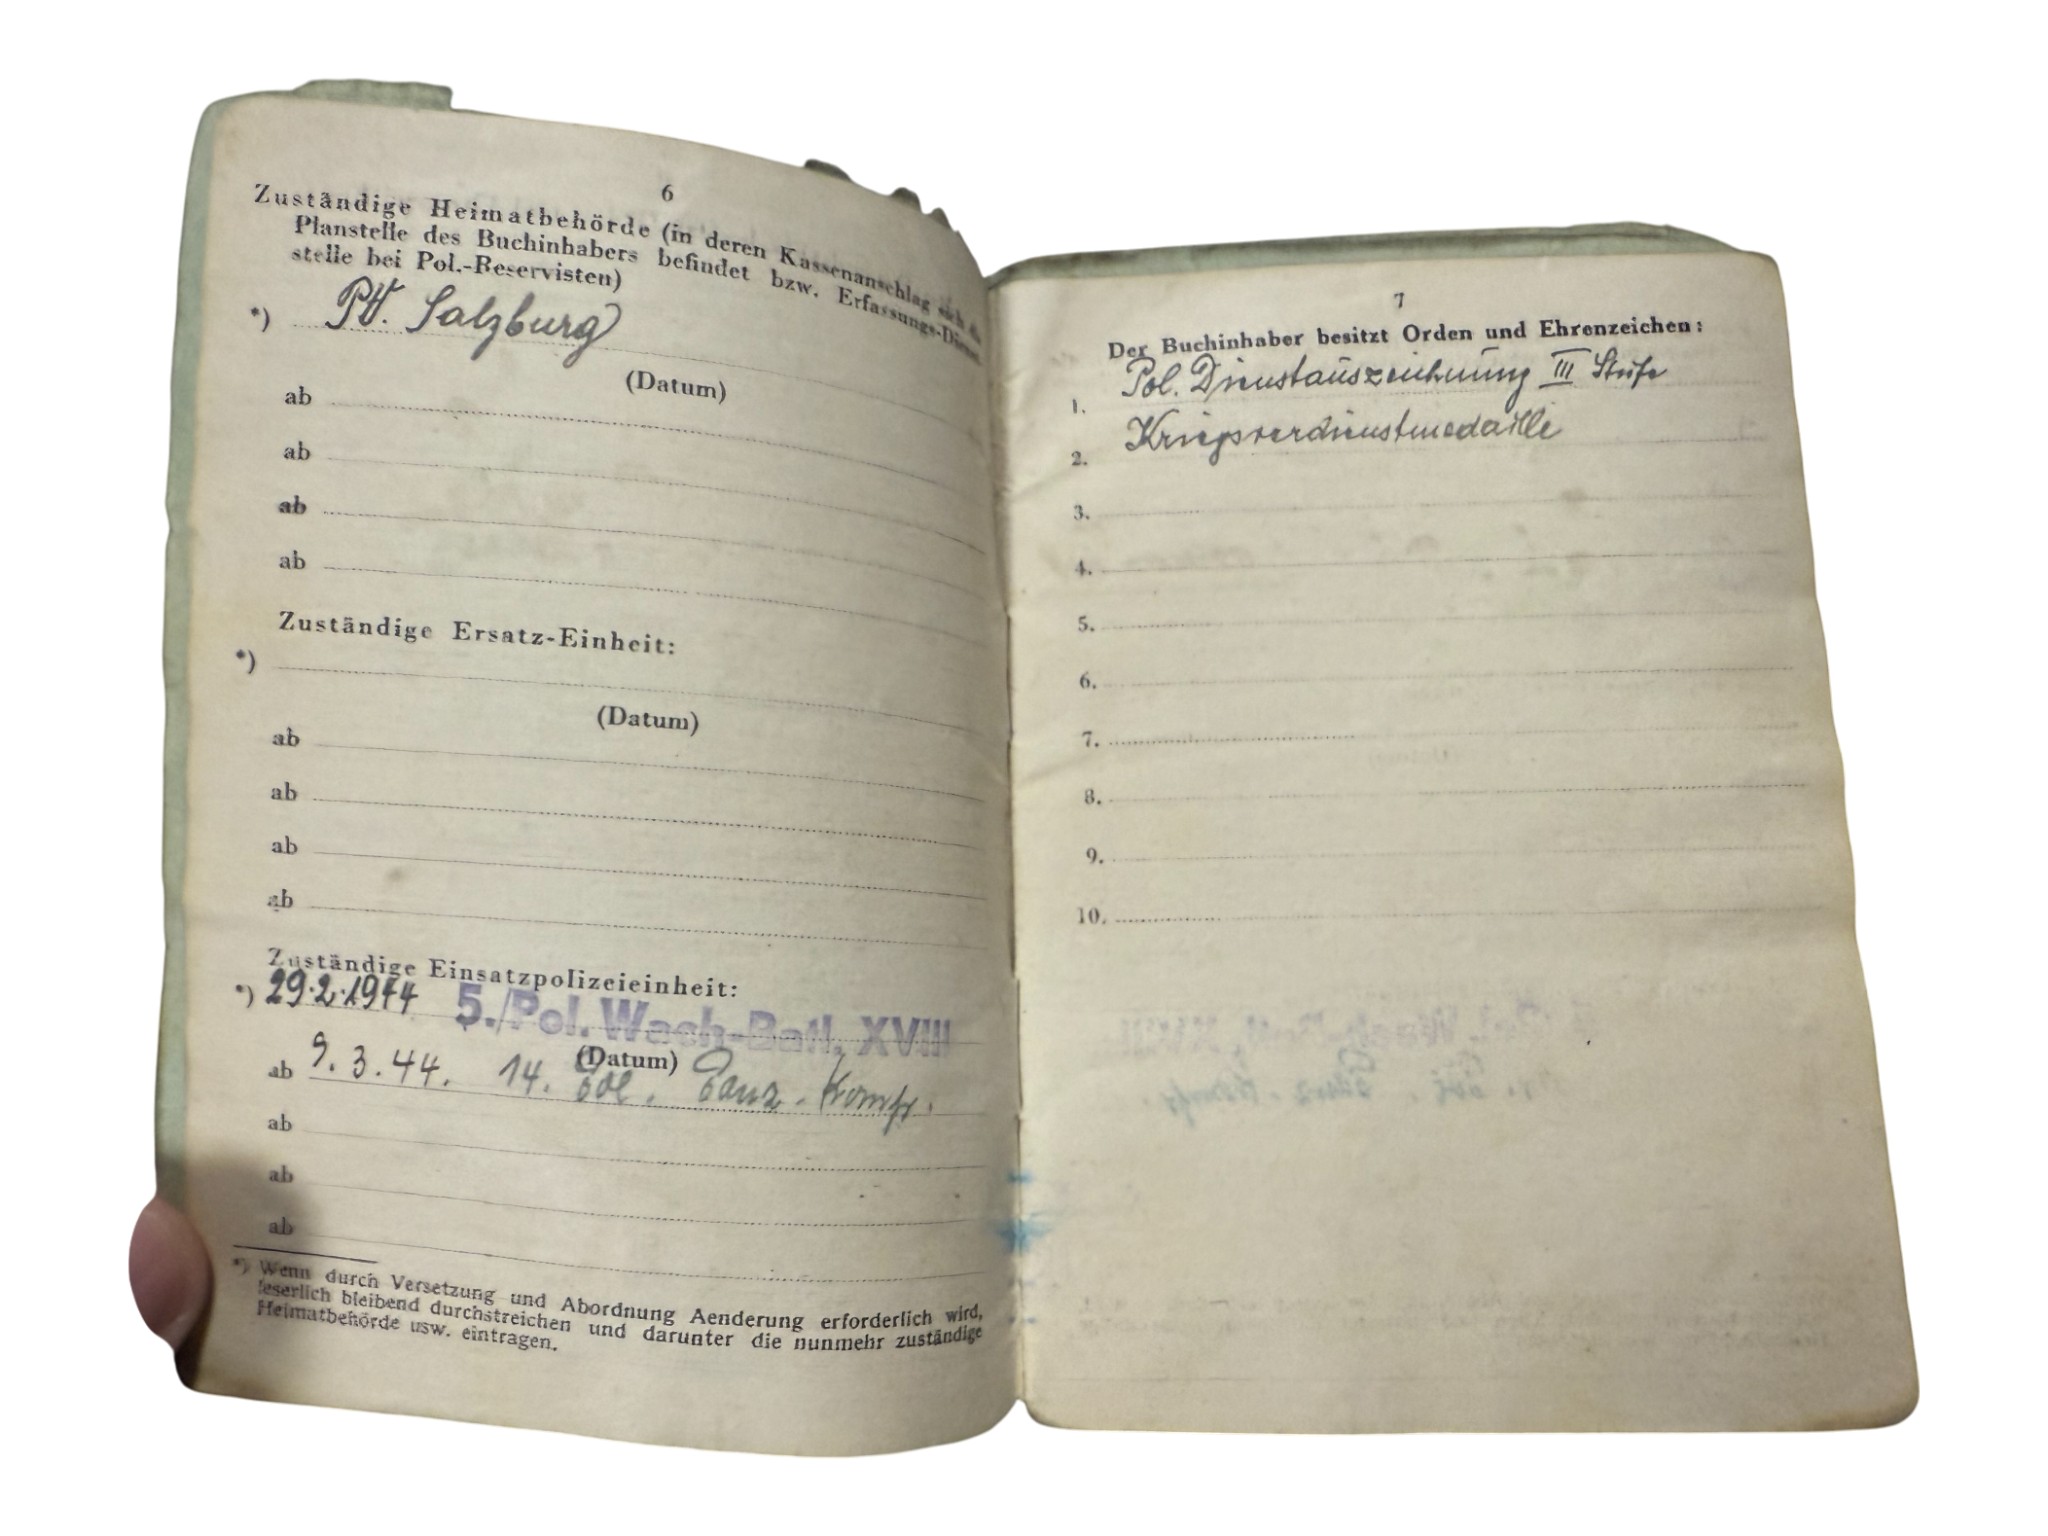 6
Zuständige Heimatbehörde (in deren Kassenanschlag sich die
Planstelle des Buchinhabers befindet bzw. Erfassungs-Dienst-
stelle bei Pol.-Reservisten)
*) PV. Salzburg
(Datum)
ab
ab
ab
ab
Zuständige Ersatz-Einheit:
*)
(Datum)
ab
ab
ab
ab
Zuständige Einsatzpolizeieinheit:
*) 29.2.1944 5./Pol. Wach-Batl. XVIII
(Datum)
ab 9.3.44. 14. Pol. Panz. Komp.
ab
ab
ab
*) Wenn durch Versetzung und Abordnung Aenderung erforderlich wird,
leserlich bleibend durchstreichen und darunter die nunmehr zuständige
Heimatbehörde usw. eintragen.
7
Der Buchinhaber besitzt Orden und Ehrenzeichen:
1. Pol. Dienstauszeichnung III Stufe
2. Kriegsverdienstmedaille
3.
4.
5.
6.
7.
8.
9.
10.